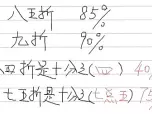 八五折 85%
九折 90%
四折是十分之(四) 40
七五折是十分之(七点五) 75